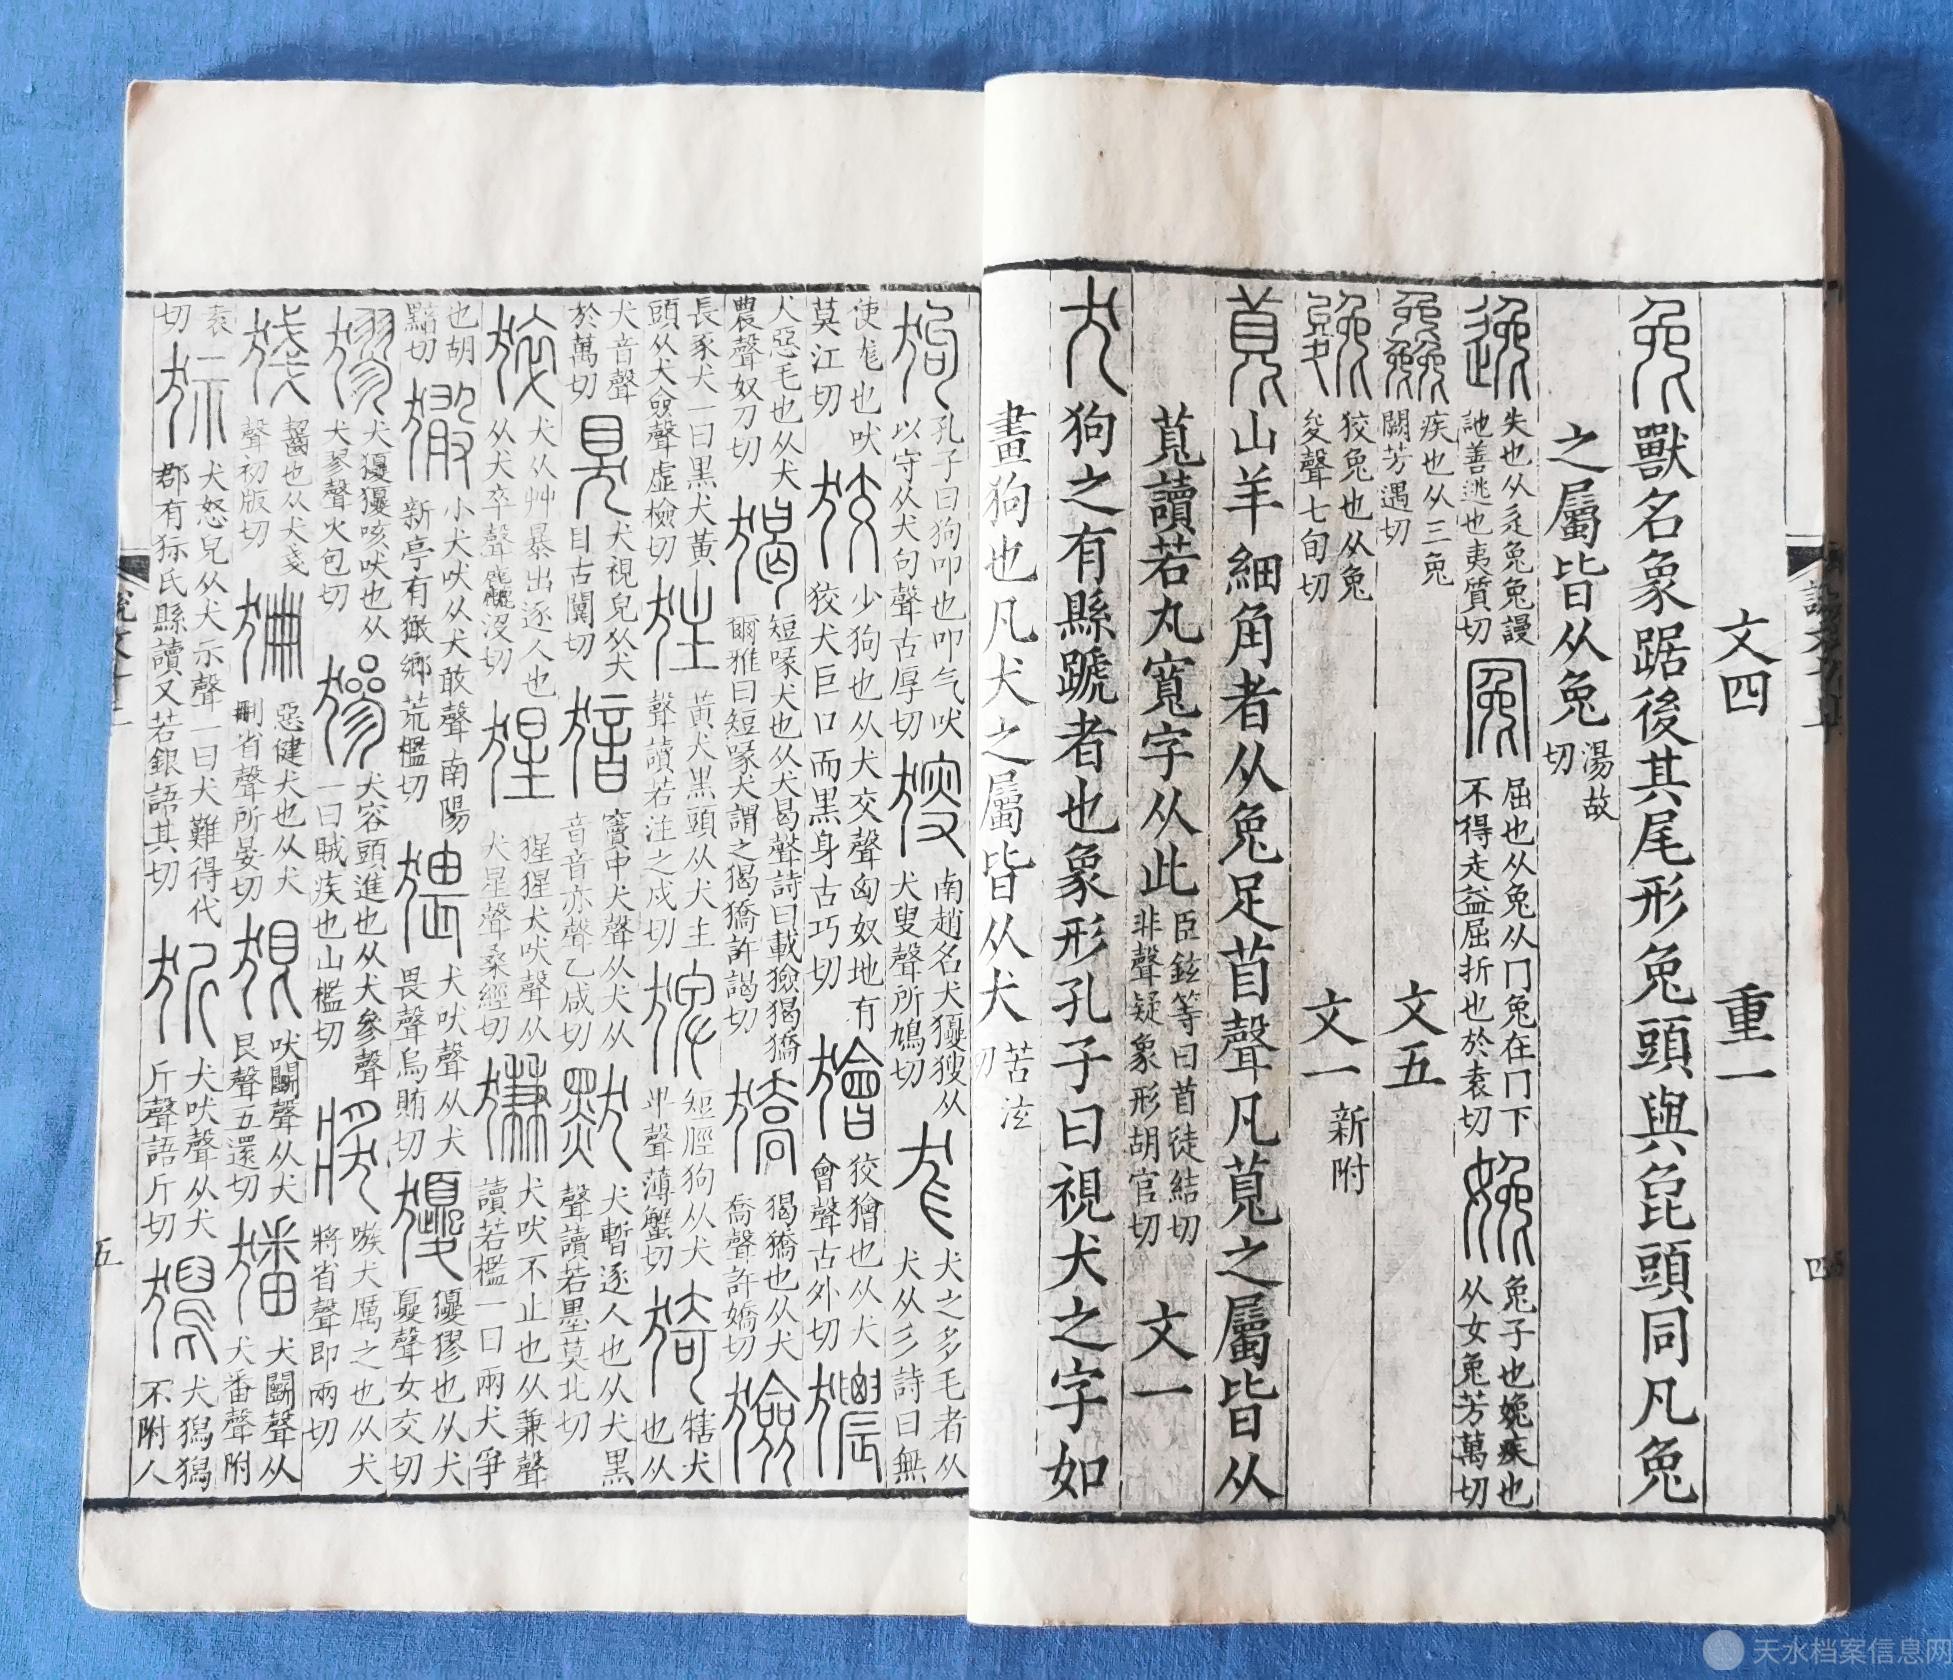 文四 重一
兔獸名象踞後其尾形兔頭與㲋頭同凡兔
之屬皆从兔湯故切
逸失也从辵兔兔謾訑善逃也夷質切冤屈也从兔从冂兔在冂下不得走益屈折也於袁切娩兔子也娩疾也从女兔芳萬切
疾也从三兔闕芳遇切 文五
㕙狡兔也从兔夋聲七旬切 文一 新附
萈山羊細角者从兔足苜聲凡萈之屬皆从
萈讀若丸寬字从此臣鉉等曰苜徒結切非聲疑象形胡官切 文一
犬狗之有縣蹏者也象形孔子曰視犬之字如
畫狗也凡犬之屬皆从犬苦泫切
四
狗孔子曰狗叩也叩气吠以守从犬句聲古厚切獀南趙名犬獿獀从犬叜聲所鳩切尨犬之多毛者从犬从彡詩曰無
使尨也吠莫江切狡少狗也从犬交聲匈奴地有狡犬巨口而黑身古巧切獪狡獪也从犬會聲古外切
犬惡毛也从犬農聲奴刀切猲短喙犬也从犬曷聲詩曰載獫猲獢爾雅曰短喙犬謂之猲獢許謁切獢猲獢也从犬喬聲許嬌切獫
長喙犬一曰黑犬黃頭从犬僉聲虛檢切㹥黃犬黑頭从犬主聲讀若注之戍切猈短脛狗从犬卑聲薄蟹切猗犗犬也从
狊犬視皃从犬目古闃切猎竇中犬聲从犬从音音亦聲乙咸切默犬暫逐人也从犬黑聲讀若墨莫北切
猝犬从艸暴出逐人也从犬卒聲麤沒切猩猩猩犬吠聲从犬星聲桑經切㺌犬吠不止也从兼聲讀若檻一曰兩犬爭
也胡黯切㺖小犬吠从犬敢聲南陽新亭有㺖鄉荒檻切猥犬吠聲从犬畏聲烏賄切獿獿㺒也从犬夒聲女交切
㺒犬獿獿咳吠也从犬翏聲火包切㺑犬容頭進也从犬參聲一曰賊疾也山檻切獎嗾犬厲之也从犬將省聲即兩切
㹽齧也从犬戔聲初版切狦惡健犬也从犬刪省聲所晏切狠吠鬭聲从犬艮聲五還切犬鬭聲从犬番聲附
袁切狋犬怒皃从犬示聲一曰犬難得代郡有狋氏縣讀又若銀語其切㹞犬吠聲从犬斤聲語斤切獡犬獡獡不附人
五
天水档案信息网